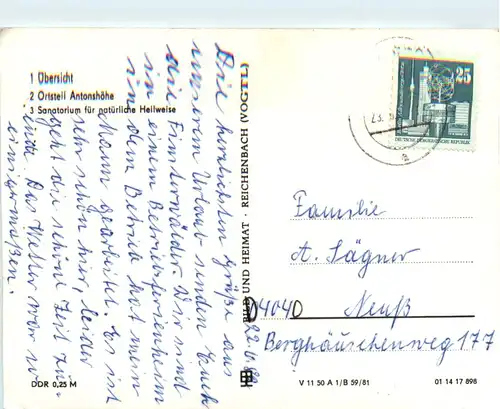 1 Übersicht
2 Ortsteil Antonshöhe
3 Sanatorium für natürliche Heilweise
22.6.82
Die herzlichsten Grüße aus
unserem Urlaub senden Euch
die Finsterwälder. Wir sind
in einem Betriebsferienheim
in dem Betrieb hat mein
Mann gearbeitet. Es ist
sehr schön hier, leider
geht die schöne Zeit zu
Ende. Das Wetter war so
einigermaßen.
BILD UND HEIMAT · REICHENBACH (VOGTL)
25
DEUTSCHE DEMOKRATISCHE REPUBLIK
23.
a
Familie
A. Sägner
D4040 Neuß
Berghäuschenweg 177
DDR 0,25 M
V 11 50 A 1/B 59/81
01 14 17 898